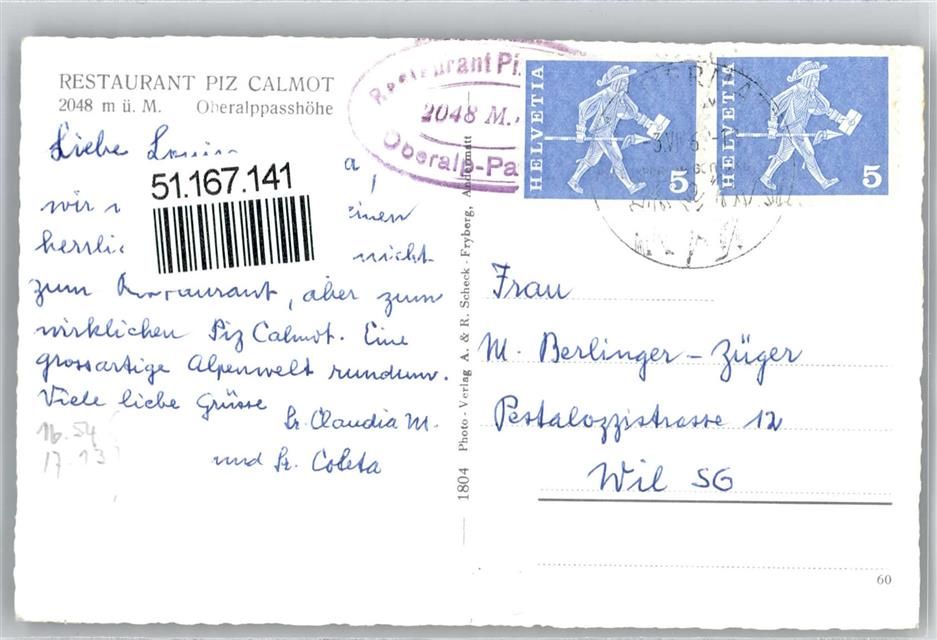 RESTAURANT PIZ CALMOT
2048 m ü. M. Oberalppasshöhe
Restaurant Pi
2048 M.
Oberalp-Pa
HELVETIA 5
HELVETIA 5
Liebe
51.167.141
wir einen
nicht
zum Restaurant, aber zum
wirklichen Piz Calmot. Eine
grossartige Alpenwelt rundum.
Viele liebe Grüsse
Sr. Claudia M.
und Sr. Coleta
16.54
17.13
1804 Photo-Verlag A. & R. Scheck-Fryberg, Andermatt
Frau
M. Berlinger-Züger
Pestalozzistrasse 12
Wil SG
60